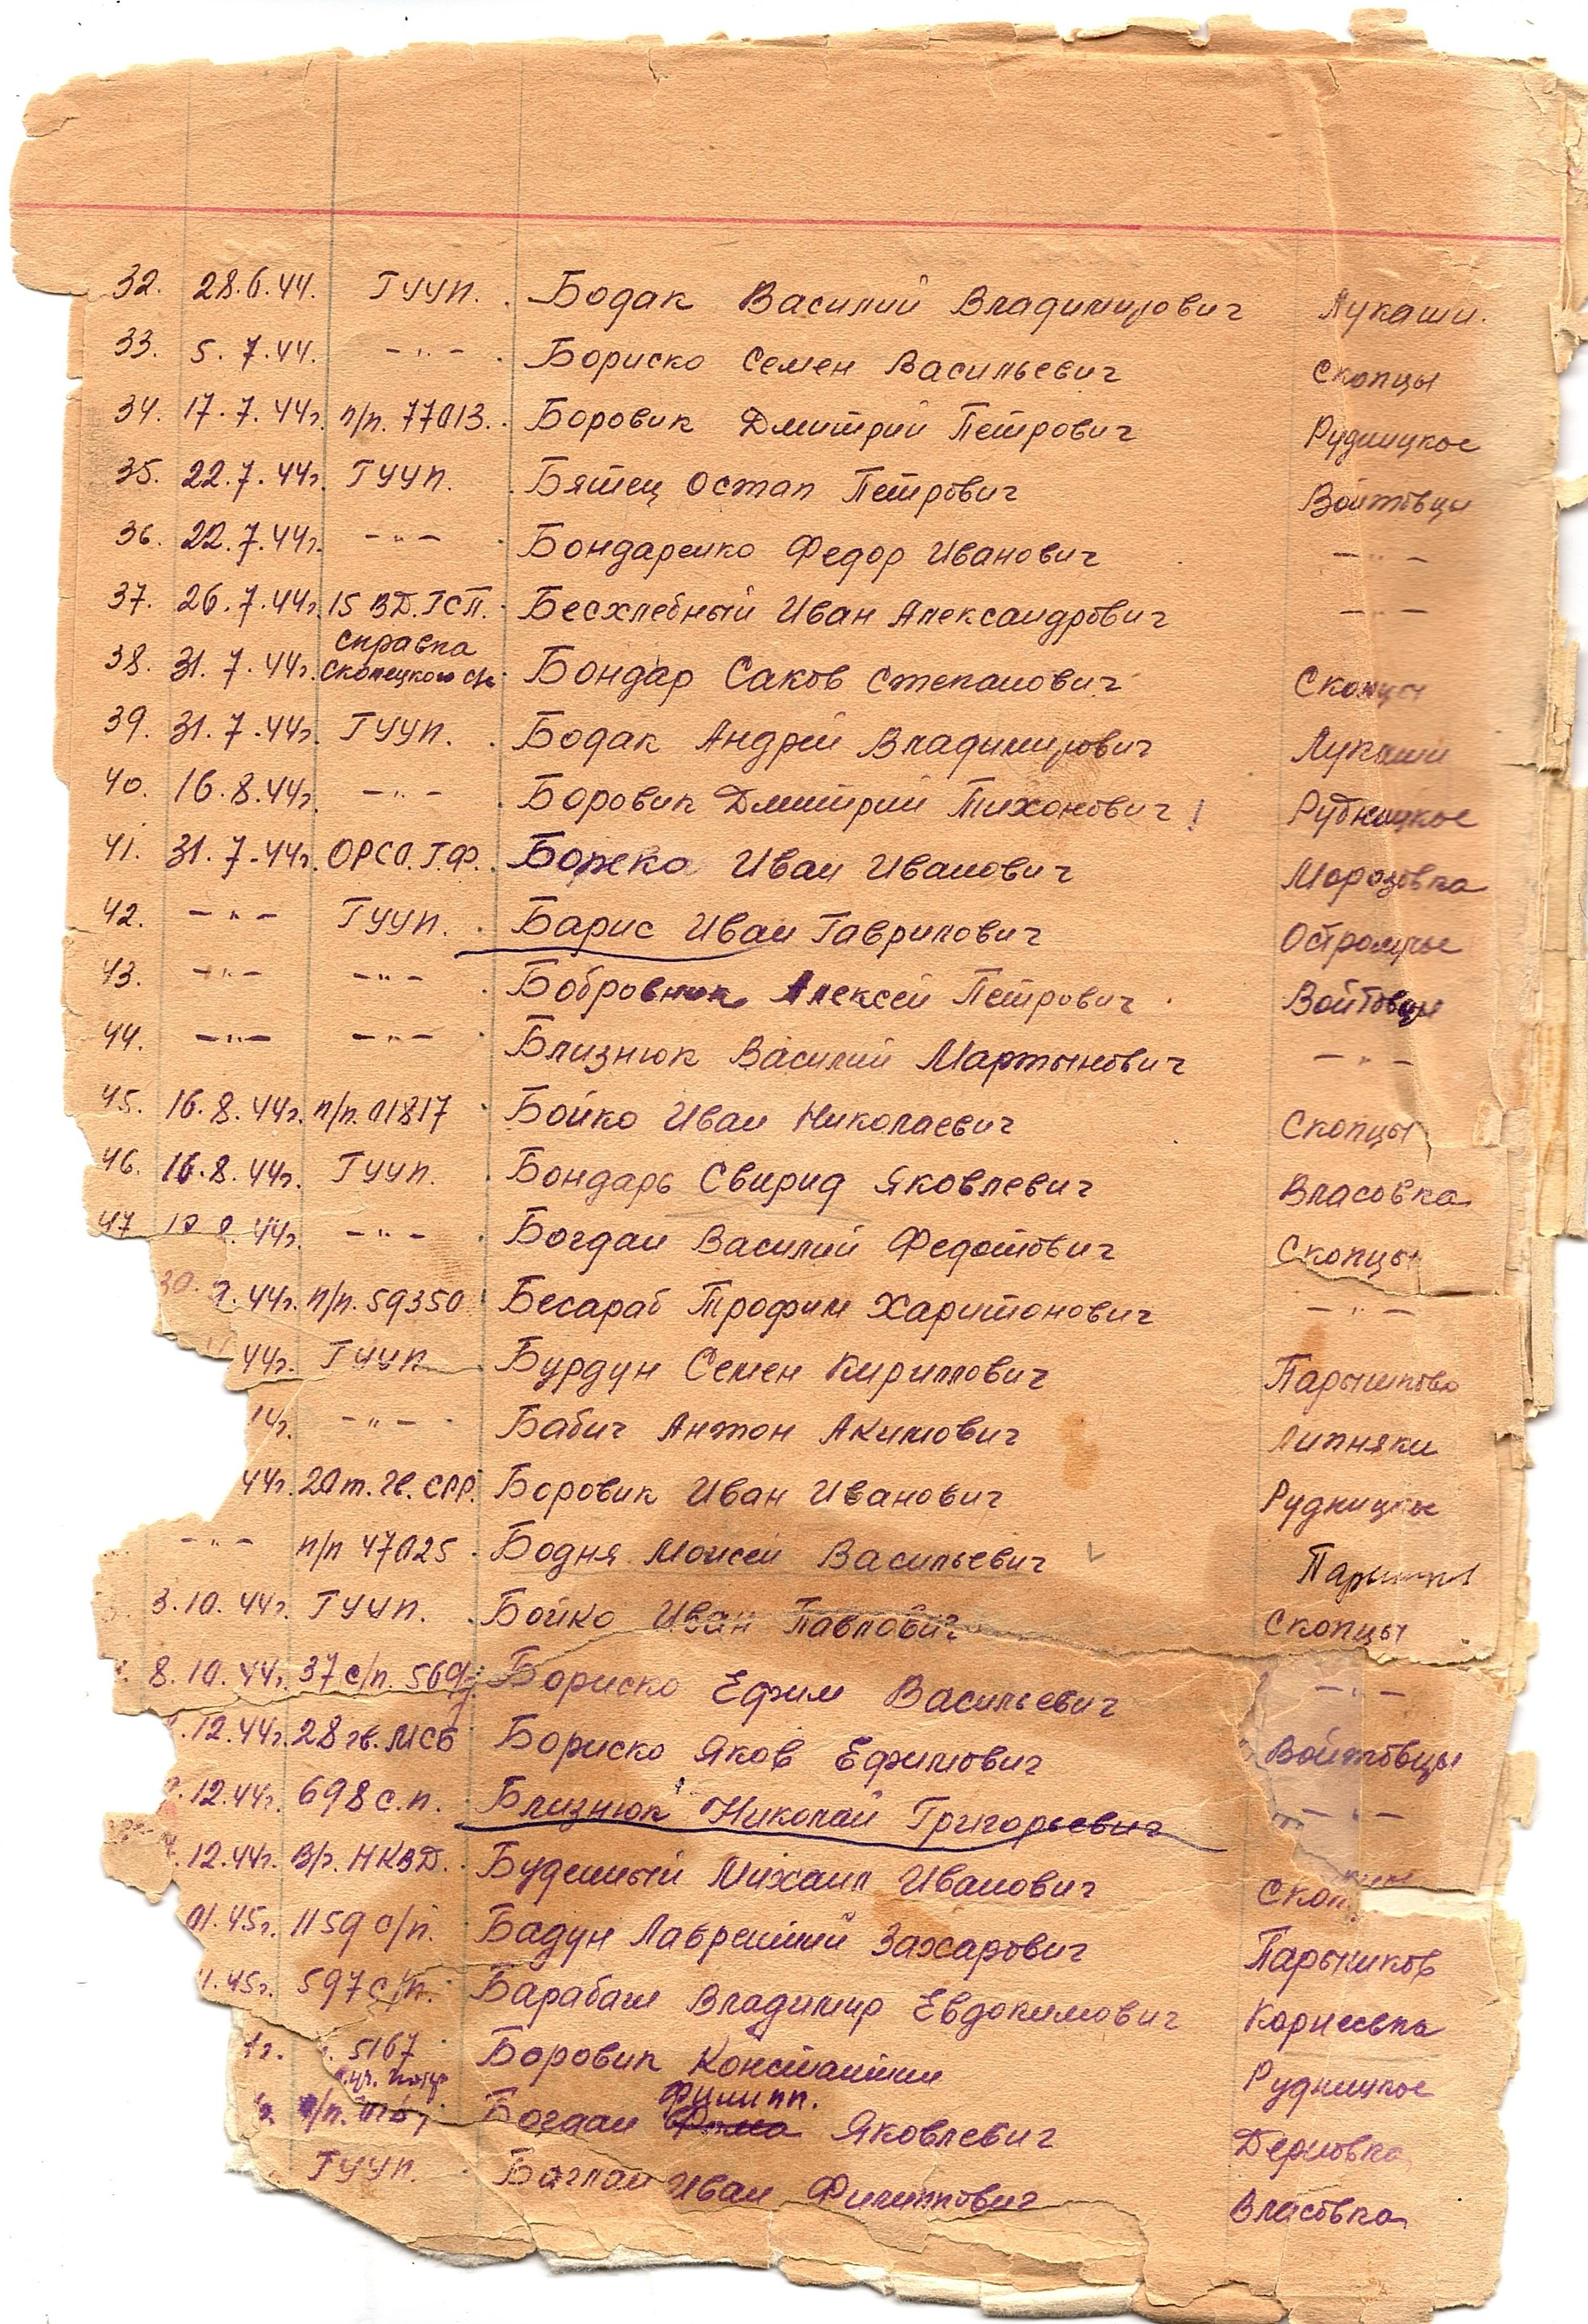 32. 28.6.44. ГУУП. Бодак Василий Владимирович Лукаши.
33. 5.7.44. -"- Бориско Семен Васильевич Скопцы
34. 17.7.44г. п/п. 77013. Боровик Дмитрий Петрович Рудницкое
35. 22.7.44г. ГУУП. Бятец Остап Петрович Войтовцы
36. 22.7.44г. -"- Бондаренко Федор Иванович -"-
37. 26.7.44г. 15 ВД.ГСП. Бесхлебный Иван Александрович -"-
справка
38. 31.7.44г. Скопецкого с/с Бондар Саков Степанович Скопцы
39. 31.7.44г. ГУУП. Бодак Андрей Владимирович Лукаши
40. 16.8.44г. -"- Боровик Дмитрий Тихонович! Рудницкое
41. 31.7.44г. ОРСО.Г.Ф. Божко Иван Иванович Морозовка
42. -"- ГУУП. Барис Иван Гаврилович Остролучье
43. -"- -"- Бобровник Алексей Петрович Войтовцы
44. -"- -"- Близнюк Василий Мартынович -"-
45. 16.8.44г. п/п. 01817 Бойко Иван Николаевич Скопцы
46. 16.8.44г. ГУУП. Бондарь Свирид Яковлевич Власовка
47 44г. -"- Богдан Василий Федотович Скопцы
30. 44г. п/п. 59350 Бесараб Трофим Харитонович -"-
44г. ГУУП Бурдун Семен Кириллович Парышково
-"- Бабич Антон Акимович Липняки
44г. 20т.гв.СРР. Боровик Иван Иванович Рудницкое
-"- п/п 47025 Бодня Моисей Васильевич
3.10.44г. ГУУП. Бойко Иван Павлович Скопцы
8.10.44г. 37 с/п. Бориско Ефим Васильевич -"-
.12.44г. 28 гв.МСб Бориско Яков Ефимович Войтовцы
.12.44г. 698 с.п. Близнюк Николай Григорьевич -"-
.12.44г. В/г. НКВД. Буденный Михаил Иванович Скоп
01.45г. 1159 с/п. Бадун Лаврентий Захарович Парышков
.45г. 597 с/п. Барабаш Владимир Евдокимович Корнеевка
5167 Боровик Константин Рудницкое
Филипп.
п/п. Богдан Фома Яковлевич Дерновка
ГУУП. Баглай Иван Филиппович Власовка